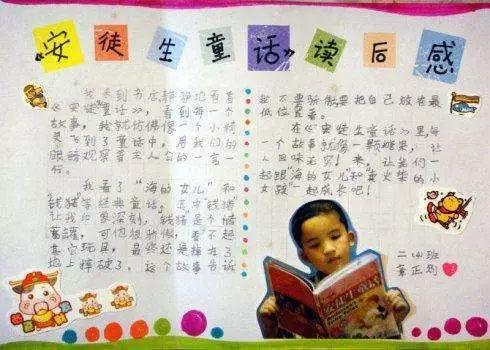 《安徒生童话》读后感
我来到书店静静地看着
《安徒生童话》，看到每一个
故事，我就仿佛像一个小精
灵飞到了童话中，用我们的
眼睛观察着主人公的一言一
行。
我看了“海的女儿”和
“钱猪”等经典童话，其中“钱猪”
让我印象深刻，钱猪是个储
蓄罐，可他很骄傲，看不起
其它玩具，最终还是掉在了
地上摔破了。这个故事告诉
不要骄傲要把自己放在最
低位置看。
在《安徒生童话》里每
一个故事就像一颗糖果，让
人回味无穷！来，让我们一
起跟“海的女儿”和“卖火柴的小
女孩”一起成长吧！
二(4)班
董正